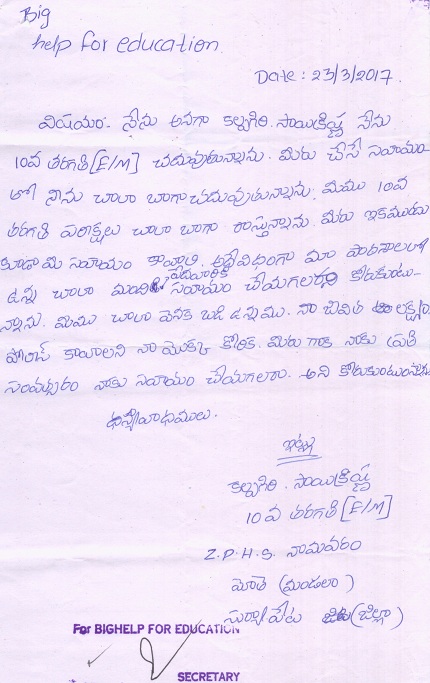 Big
help for education.
Date : 23/3/2017.
విషయం:- నేను అనగా కల్బగిరి. సాయిక్రిష్ణ నేను
10వ తరగతి [E/M] చదువుతున్నాను. మీరు చేసే సహయం
తో నాను చాలా బాగా చదువుతున్నాను. మేము 10వ
తరగతి పరీక్షలు చాలా బాగా రాస్తున్నాను. మీరు ఇకముందు
కూడా మీ సహయం కావాలి. అదేవిధంగా మా పాఠశాలలో
ఉన్న చాలా మంది పేదవారికి సహయం చేయగలరని కోరుకుంటు-
న్నాను. మేము చాలా వెనకబడి ఉన్నాము. నా జీవిత లక్ష్యం
పోలీస్ కావాలని నా యొక్క కోరిక. మీరు గాక నాకు ప్రతి
సంవత్సరం నాకు సహయం చేయగలరు. అని కోరుకుంటున్నాను
ధన్యవాదములు.
ఇట్లు
కల్బగిరి. సాయిక్రిష్ణ
10 వ తరగతి [E/M]
Z.P.H.S. నామవరం
మోతె (మండలం)
సూర్యాపేట (జిల్లా)
For BIGHELP FOR EDUCATION
SECRETARY